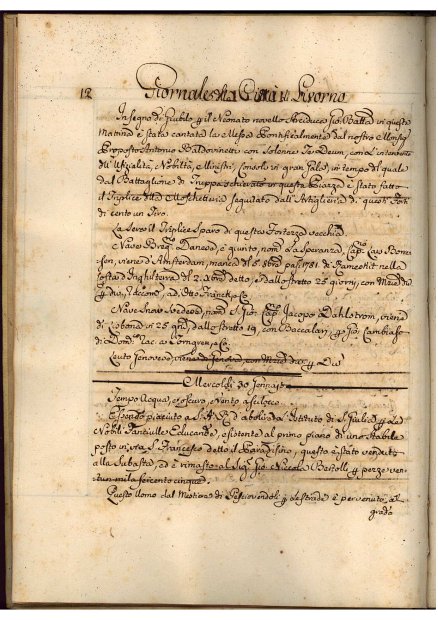 12 Giornale della Città di Livorno
In segno di Giubilo p. il Neonato novello Arciduca Gio: Batta in questa
Mattina è stata cantata la Messa Pontificalmente dal nostro Monsig.
Proposto Antonio Baldovinetti con Solenne Te Deum, con l'intervento
dell'Ufizialità, Nobiltà, Ministri, Consoli in gran Gala, in tempo di quale
dal Battaglione di Truppa schierato in questa Piazza è stato fatto
il Triplice della Moschetteria seguitato dall'Artiglieria di questi Forti
di cento un Tiro.
La Sera il Triplice Sparo di questa Fortezza vecchia
Nave Danese, è giunto, nom. La Speranza, Cap.
viene d'Amsterdam, manca del 5 8bre pas. 1781. di Ramschit nella
Costa d'Inghilterra del 2 detto, e dallo stretto 25 giorni, con Mercanzie
p. div., Raccom. ad Otto Franck, e C.
Nave Snow Svedese, nom. S. Gio: Cap. Jacopo Dahlstrom, viene
di Lisbona in 25 gni, dallo stretto 19, con Baccalari, p. Gio: Cambiaso
di Dom. Rac. a e C.
Leuto Genovese, viene da Genova, con Mercanzie p. Div.
Mercoldì 30 Jennajo
Tempo Acqua, e oscuro, Vento a Scilocco
Essendo piaciuto a S.A.R. d'abolire l'Istituto di S. Giulia p. le
Nobili Fanciulle Educande, esistente al primo piano di uno stabile
posto in via S. Francesco detto il Paradisino, questo è stato venduto
alla Subasta, ed è rimasto al Sig. Gio: Niccola Bertolli p. pezze ven-
tun mila seicento cinque.
Questo Uomo dal Mestiere di p. le strade è pervenuto al
grado